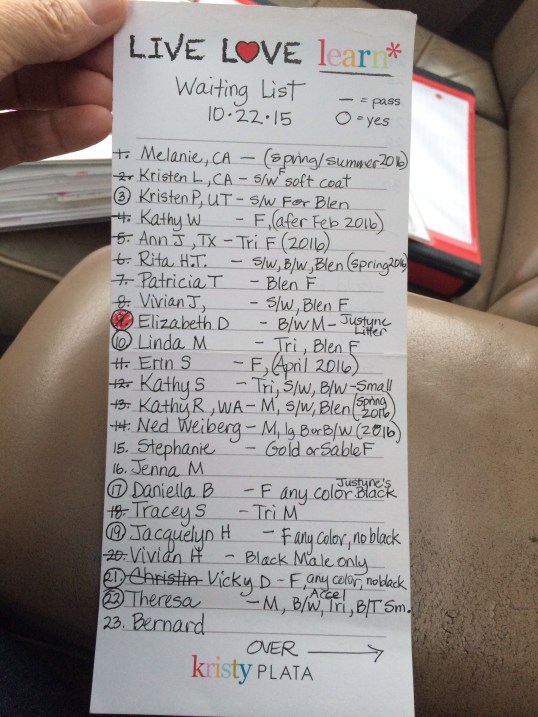 LIVE LOVE learn*
Waiting List
10·22·15
— = pass
O = yes
1. Melanie, CA — (spring/summer 2016)
2. Kristen L, CA - S/W F soft coat
3 Kristen P, UT - S/W F or Blen
4. Kathy W - F, (afer Feb 2016)
5. Ann J, TX - Tri F (2016)
6. Rita H.T. - S/W, B/W, Blen (spring 2016)
7. Patricia T - Blen F
8. Vivian J, - S/W, Blen F
9. Elizabeth D - B/W M - Justyne Litter
10 Linda M - Tri, Blen F
11. Erin S - F, (April 2016)
12. Kathy S - Tri, S/W, B/W - Small
13. Kathy R, WA - M, S/W, Blen (Spring 2016)
14. Ned Weiberg - M, lg B or B/W (2016)
15. Stephanie - Gold or Sable F
16. Jenna M
17 Daniella B - F any color Justyne's Black
18. Tracey S - Tri M
19 Jacquelyn H - F any color, no black
20. Vivian H - Black Male only
21. Christin Vicky D - F, any color, no black
22 Theresa - M, B/W, Tri, B/T Sm. Accel
23. Bernard
OVER →
kristy PLATA